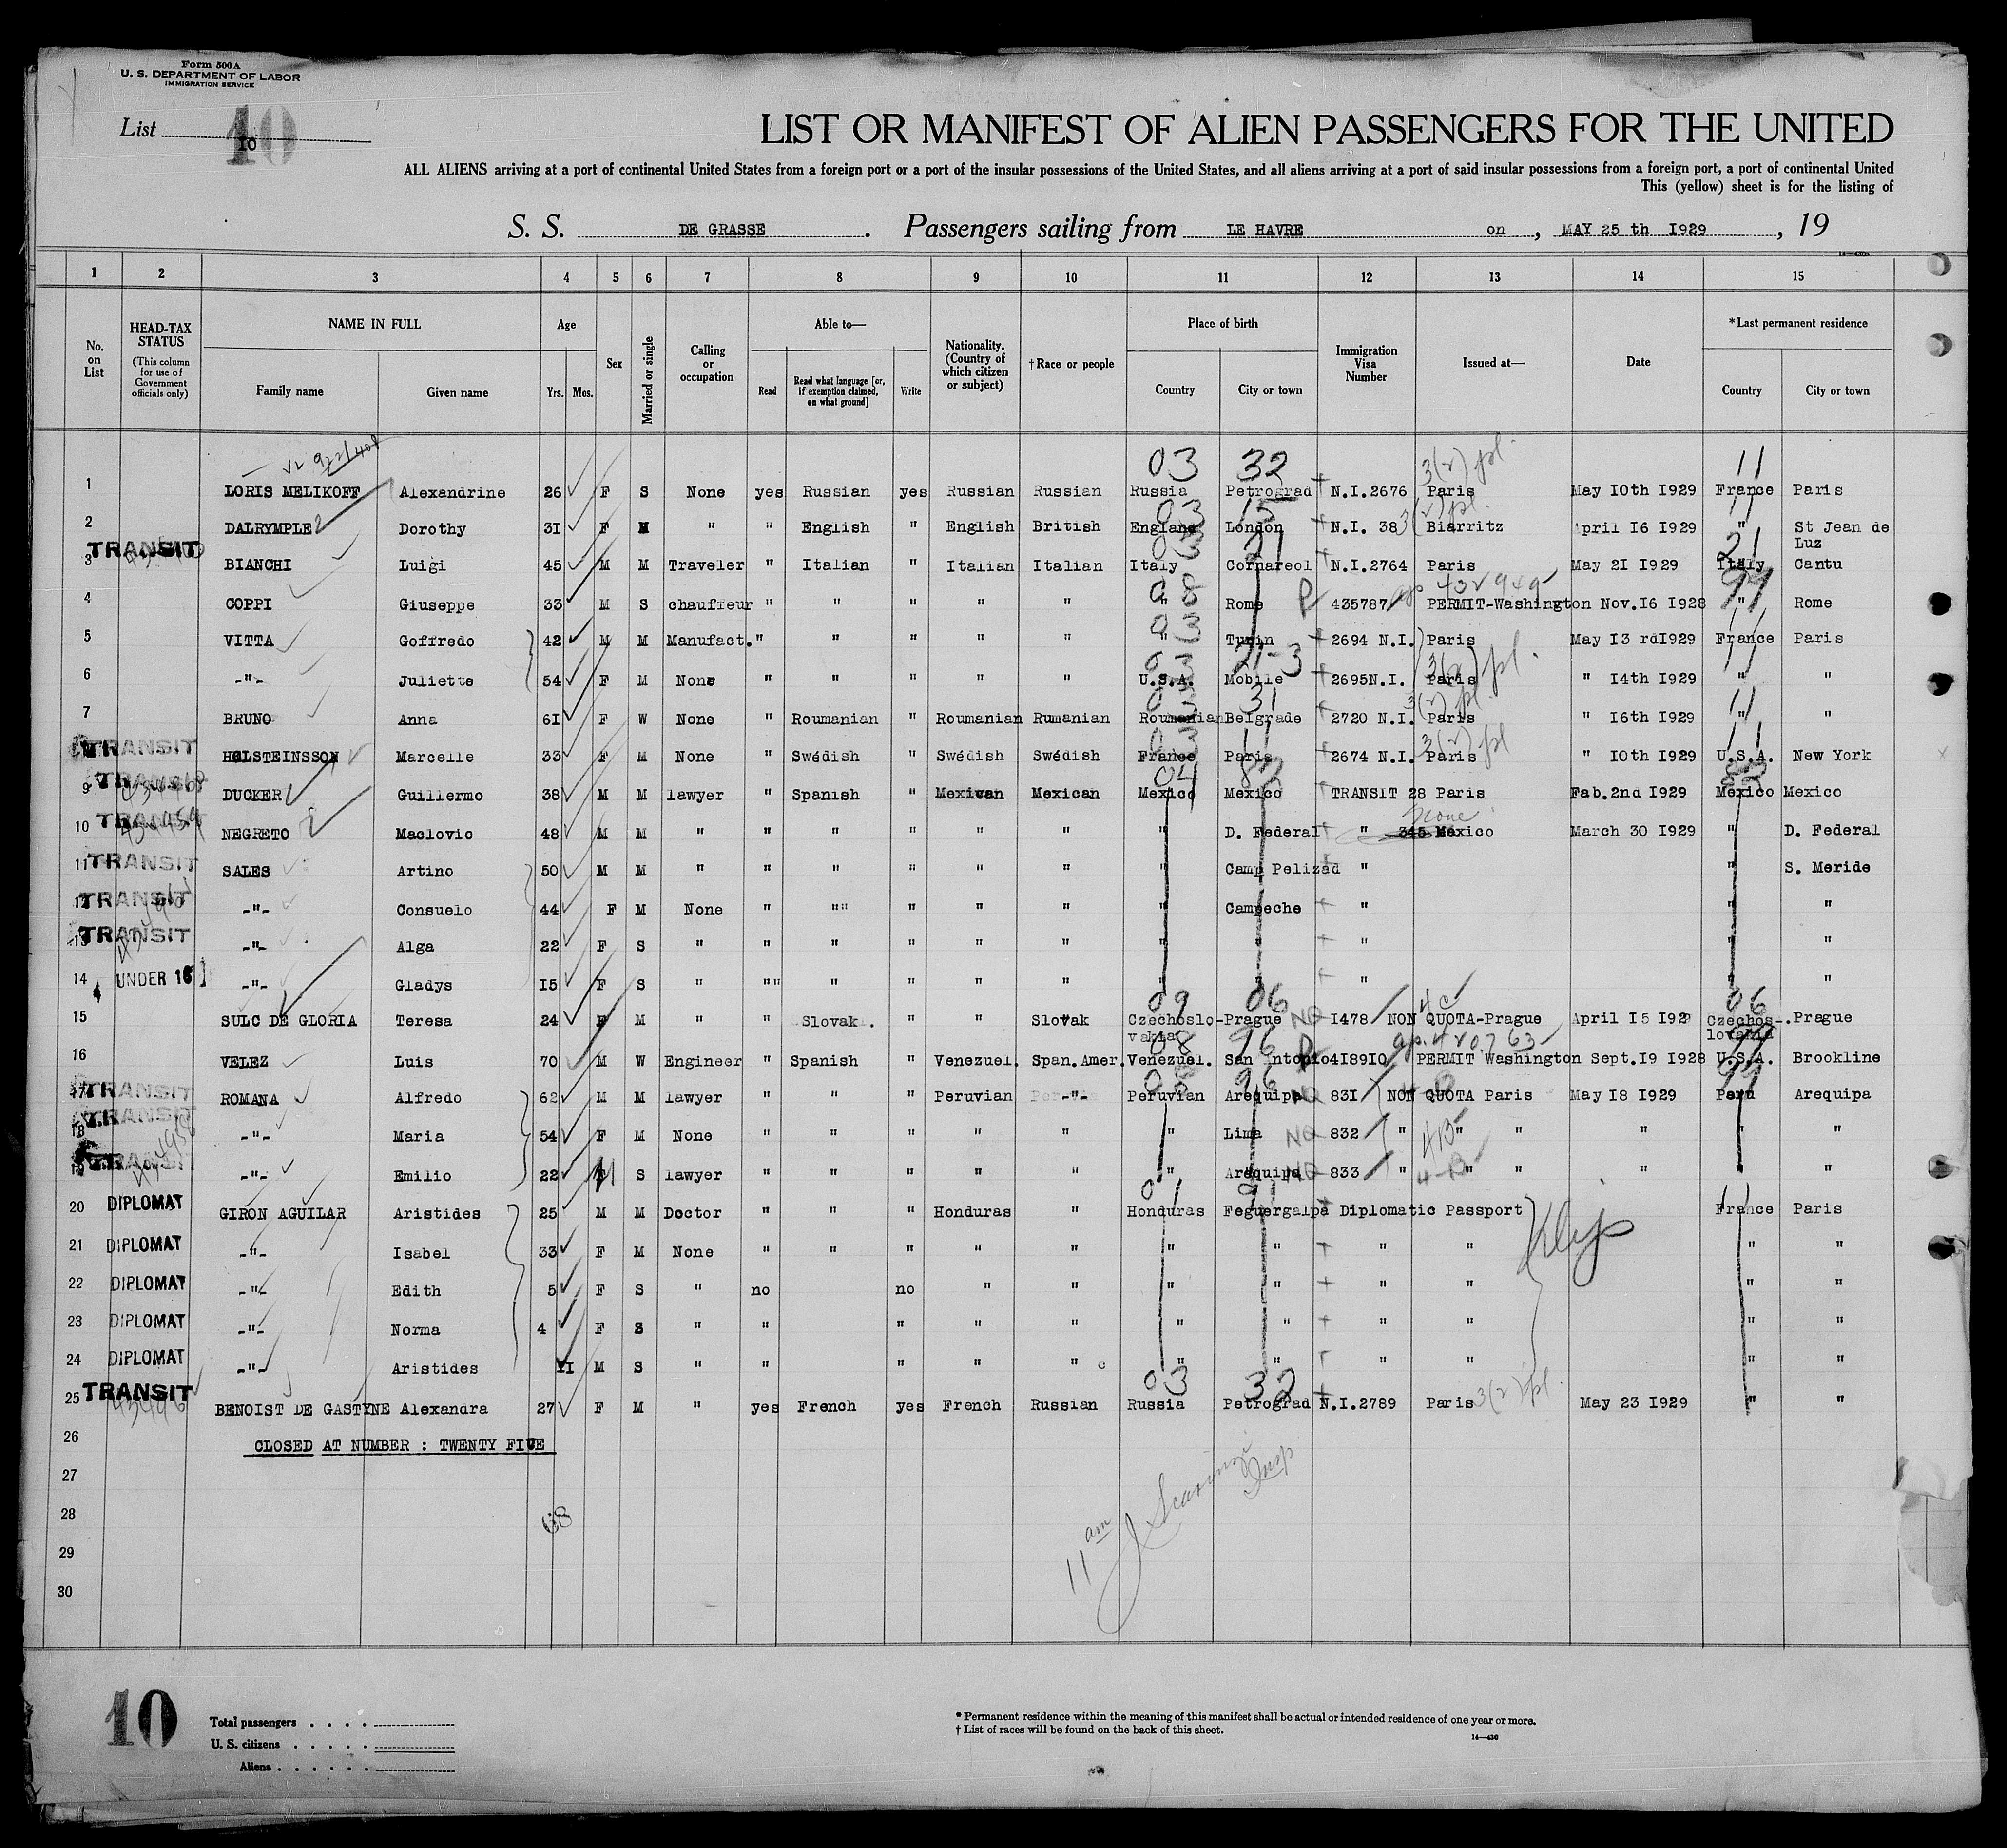 Form 500A
U. S. DEPARTMENT OF LABOR
IMMIGRATION SERVICE
List 10
10
LIST OR MANIFEST OF ALIEN PASSENGERS FOR THE UNITED
ALL ALIENS arriving at a port of continental United States from a foreign port or a port of the insular possessions of the United States, and all aliens arriving at a port of said insular possessions from a foreign port, a port of continental United
This (yellow) sheet is for the listing of
S. S. DE GRASSE . Passengers sailing from LE HAVRE on , MAY 25 th 1929 , 19
1 2 3 4 5 6 7 8 9 10 11 12 13 14 15
No. on List
HEAD-TAX STATUS (This column for use of Government officials only)
NAME IN FULL Family name Given name
Age Yrs. Mos.
Sex
Married or single
Calling or occupation
Able to— Read Read what language [or, if exemption claimed, on what ground] Write
Nationality. (Country of which citizen or subject)
†Race or people
Place of birth Country City or town
Immigration Visa Number
Issued at—
Date
*Last permanent residence Country City or town
03 32 3(2) pl. 11
1 LORIS MELIKOFF Alexandrine 26 F S None yes Russian yes Russian Russian Russia Petrograd N.I.2676 Paris May 10th 1929 France Paris
2 DALRYMPLE Dorothy 31 F M " " English " English British England London N.I. 38 Biarritz April 16 1929 " St Jean de Luz
TRANSIT
3 BIANCHI Luigi 45 M M Traveler " Italian " Italian Italian Italy Cornareol N.I.2764 Paris May 21 1929 Italy Cantu
4 COPPI Giuseppe 33 M S chauffeur " " " " " " Rome 435787 PERMIT-Washington Nov.16 1928 " Rome
5 VITTA Goffredo 42 M M Manufact. " " " " " " Turin 2694 N.I. Paris May 13 rd1929 France Paris
6 -"- Juliette 54 F M None " " " " " U.S.A. Mobile 2695N.I. Paris " 14th 1929 " "
7 BRUNO Anna 61 F W None " Roumanian " Roumanian Rumanian Roumanian Belgrade 2720 N.I. Paris " 16th 1929 " "
TRANSIT HOLSTEINSSON Marcelle 33 F M None " Swédish " Swédish Swédish France Paris 2674 N.I. Paris " 10th 1929 U.S.A. New York
TRANSIT
9 DUCKER Guillermo 38 M M lawyer " Spanish " Mexican Mexican Mexico Mexico TRANSIT 28 Paris Fab.2nd 1929 Mexico Mexico
TRANSIT
10 NEGRETO Maclovio 48 M M " " " " " " " D. Federal " 345 Mexico March 30 1929 " D. Federal
11 TRANSIT SALES Artino 50 M M " " " " " " " Camp Pelizad " " S. Meride
12 TRANSIT -"- Consuelo 44 F M None " "" " " " " Campeche " " "
13 TRANSIT -"- Alga 22 F S " " " " " " " " " " "
14 UNDER 16 -"- Gladys 15 F S " "" " " " " " " " " "
15 SULC DE GLORIA Teresa 24 F M " " Slovak. " " Slovak Czechoslo-vakia Prague NQ 1478 NON QUOTA-Prague April 15 192 Czechos-lovakia Prague
16 VELEZ Luis 70 M W Engineer " Spanish " Venezuel. Span.Amer. Venezuel. San ntonio 418910 PERMIT Washington Sept.19 1928 U.S.A. Brookline
17 TRANSIT ROMANA Alfredo 62 M M lawyer " " " Peruvian -"- Peruvian Arequipa NQ 831 NON QUOTA Paris May 18 1929 Peru Arequipa
TRANSIT
18 -"- Maria 54 F M None " " " " " " Lima NQ 832 " " " " " "
19 TRANSIT -"- Emilio 22 M S lawyer " " " " " " Arequipa NQ 833 " " " " " "
20 DIPLOMAT GIRON AGUILAR Aristides 25 M M Doctor " " " Honduras " Honduras Feguergalpa Diplomatic Passport France Paris
21 DIPLOMAT -"- Isabel 33 F M None " " " " " " " " " " "
22 DIPLOMAT -"- Edith 5 F S " no no " " " " " " " "
23 DIPLOMAT -"- Norma 4 F S " " " " " " " " " " "
24 DIPLOMAT -"- Aristides 11 M S " " " " " " " " " " "
03 32
25 TRANSIT BENOIST DE GASTYNE Alexandra 27 F M " yes French yes French Russian Russia Petrograd N.I.2789 Paris 3(2) pl. May 23 1929 " "
26 CLOSED AT NUMBER : TWENTY FIVE
27
28 68
29 11 am
30
10
Total passengers . . . .
U. S. citizens . . . . .
Aliens . . . . . .
* Permanent residence within the meaning of this manifest shall be actual or intended residence of one year or more.
† List of races will be found on the back of this sheet.
14—430